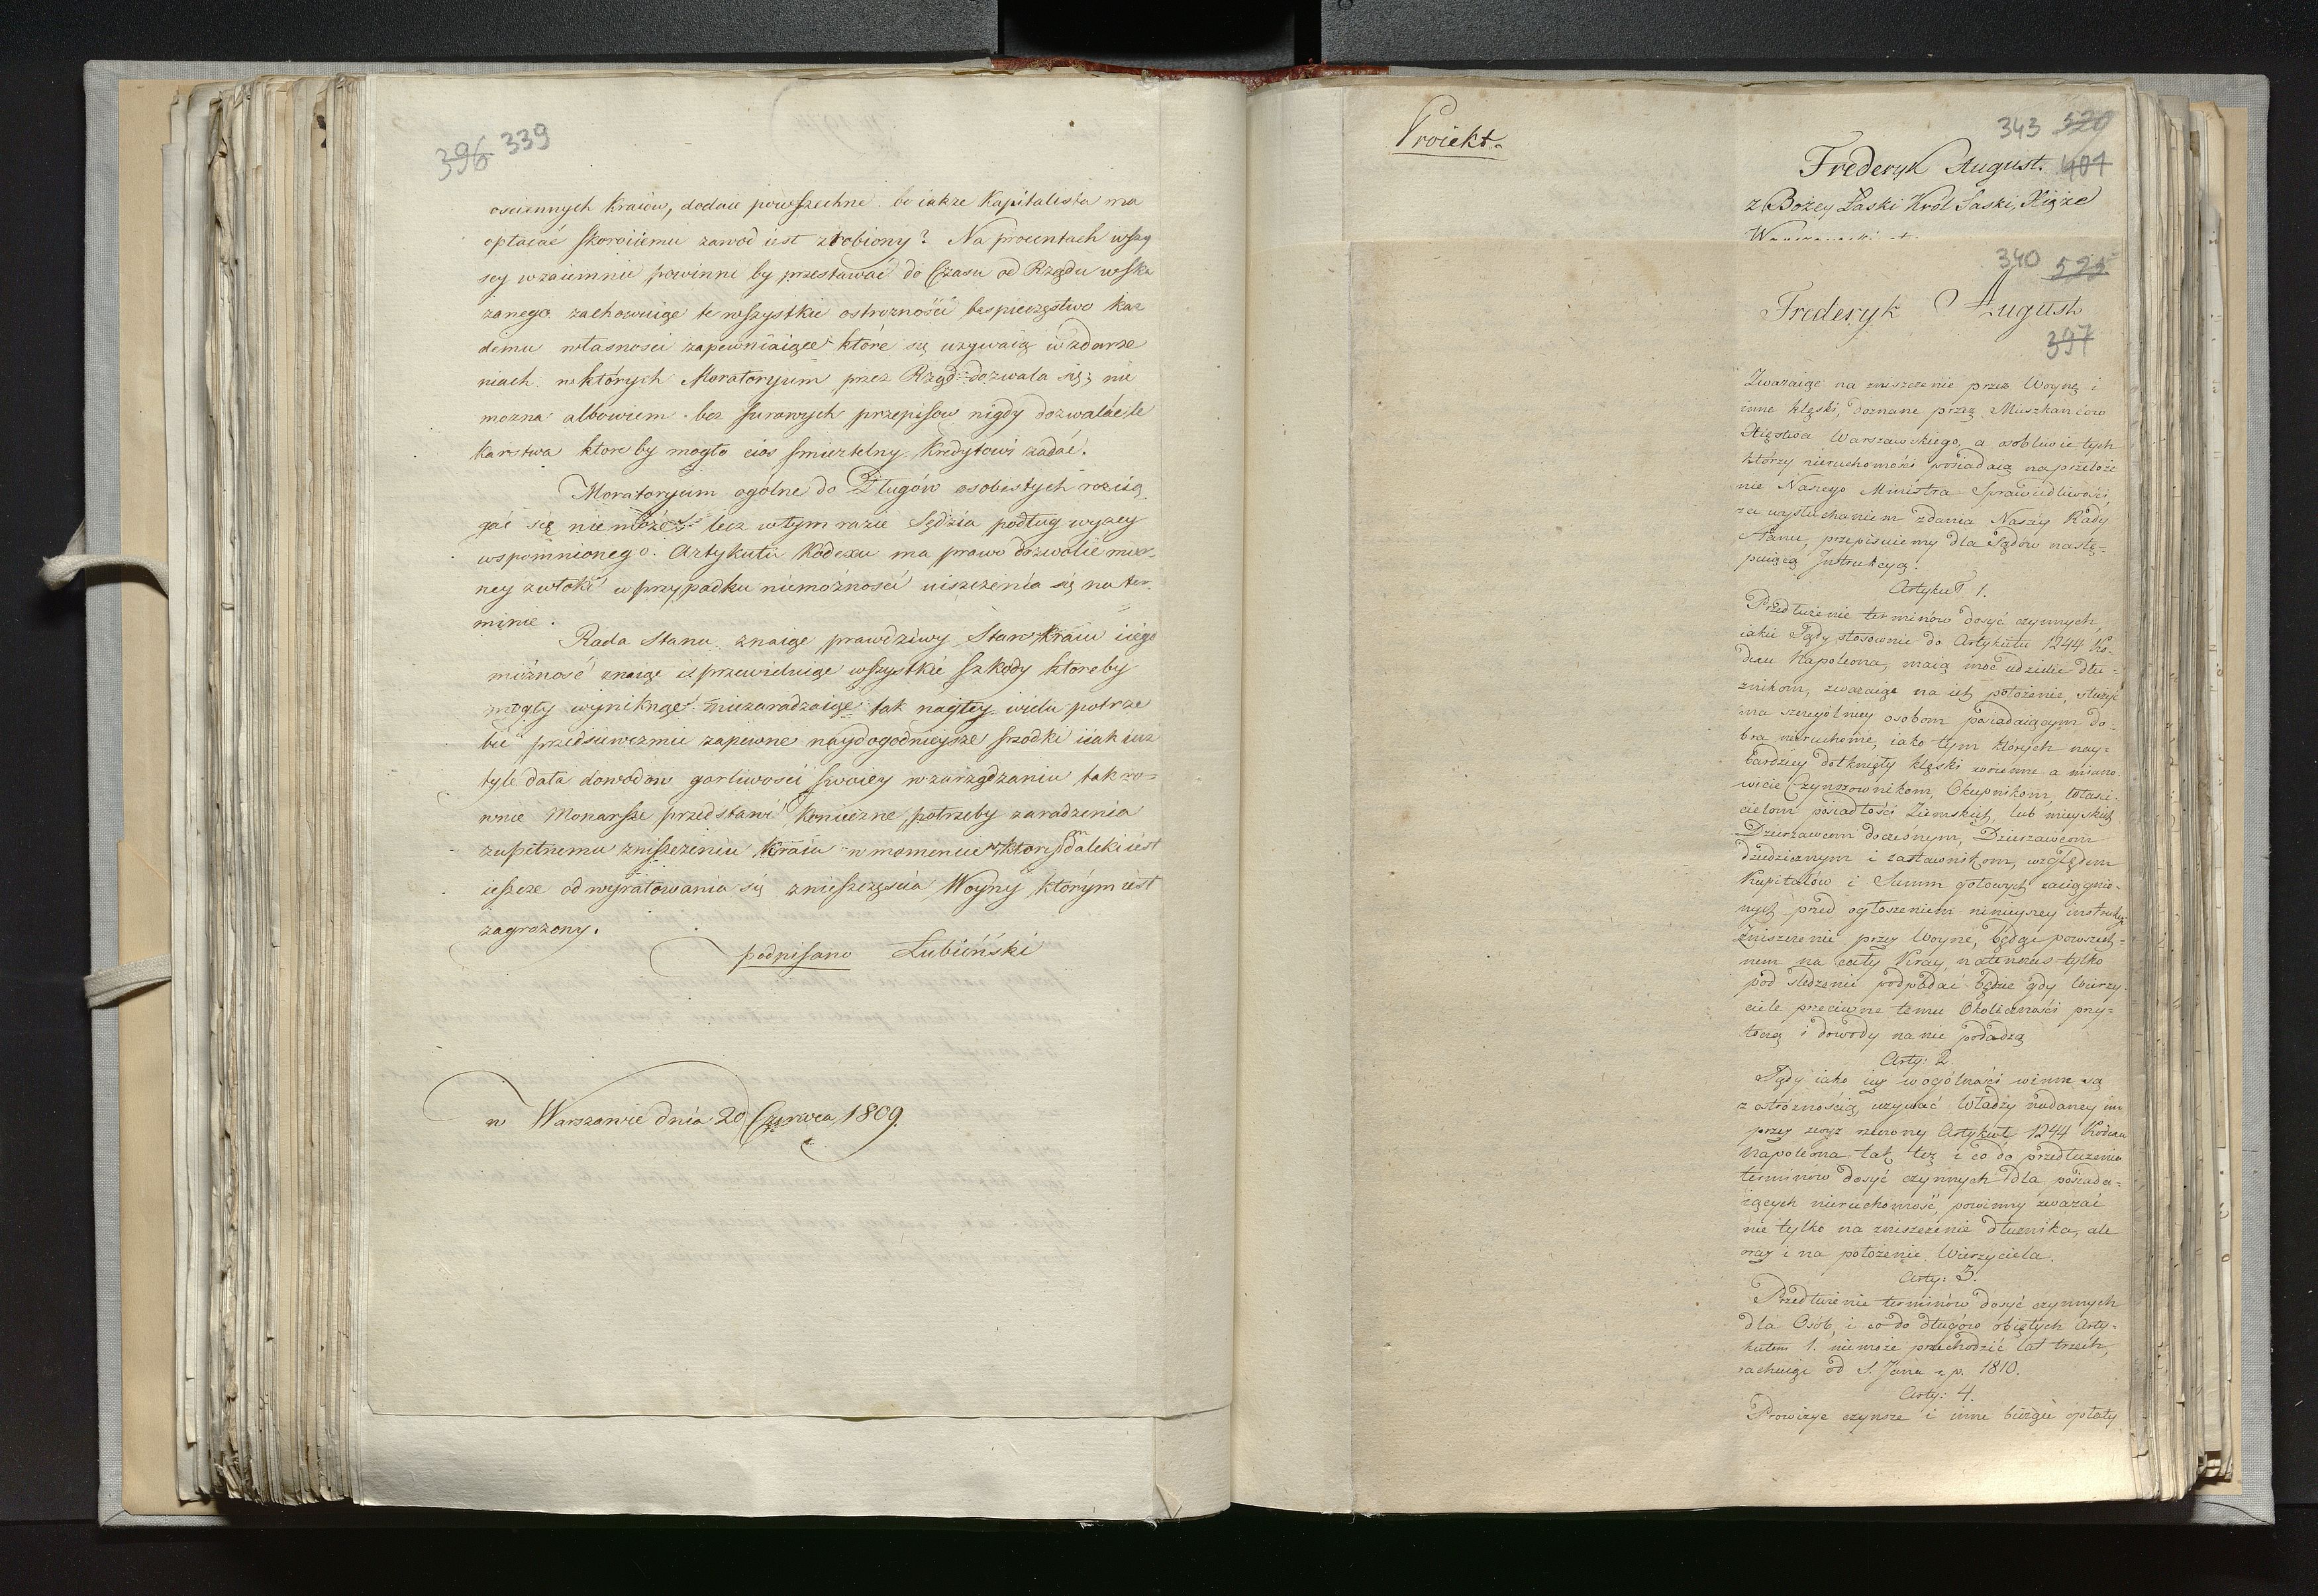 396 339
osciennych Kraiow, dodaie powszechne. bo iakze Kapitalista ma
opłacać skoro iemu zawod iest zrobiony? Na procentach wszy
scy wzaiemnie powinni by przestawać do Czasu od Rządu wska
zanego zachowuiąc te wszystkie ostrozności bespieczęstwo kaz
demu własnosci zapewniaiące które się uzywaią w zdarze
niach w których Moratoryum przez Rząd dozwala się; nie
mozna albowiem bez surowych przepisow nigdy dozwalać le
karstwa ktore by mogło cios smiertelny Kredytowi zadać.
Moratoryum ogolne do Długów osobistych rozcią
gać się nie może lecz w tym razie Sędzia podług wyzey
wspomnionego Artykułu Kodexu ma prawo dozwolić mier-
ney zwłoki w przypadku niemożności uiszczenia się na ter
minie.
Rada Stanu znaiąc prawdziwy Stan Kraiu iiego
możność znaiąc i przewiduiąc wszystkie szkody ktoreby
mogły wyniknąć niezaradzaiąc tak nagłey wielu potrze
bie przedsiewezmie zapewne naydogodnieysze srzodki iiak iuz
tyle dała dowodow gorliwosci swoiey w zarządzaniu tak ro=
wnie Monarsze przedstawi Konieczne potrzeby zaradzenia
zupełnemu zniszczeniu Kraiu w momencie w ktorym daleki iest
ieszcze od wyratowania się znieszczęscia Woyny którym iest
zagrozony.
podpisano Łubieński
w Warszawie dnia 20 Czerwca 1809.
Proiekt.
343 520
Frederyk August. 401
z Bożey Łaski Król Saski, Xiąże
340 525
Frederyk August
397
Zwazaiąc na zniszczenie przez Woynę i
inne klęski, doznane przez Mieszkańców
Xięstwa Warszawskiego, a osobliwie tych
którzy nieruchomości posiadaią na przełoże
nie Naszego Ministra Sprawiedliwości,
za wysłuchaniem zdania Naszéy Rady
Stanu, przepisuiemy dla Sądów nastę=
puiącą Instrukcyą.
Artykuł 1.
Przedłużenie terminów dosyć czynnych,
iakie Sądy stosownie do Artykułu 1244 Ko-
dexu Napoleona, maią moc udzielić dłu-
znikom, zwazaiąc na ich położenie, służyć
ma szczególniey osobom posiadaiącym do-
bra nieruchome, iako tym których nay-
bardziey dotknęły klęski woienne a miano-
wicie Czynszownikom, Okupnikom, właści-
cielom posiadłości Ziemskich, lub mieyskich
Dzierzawcom doczesnym, Dzierzawcom
dziedzicznym i zastawnikom, względem
Kapitałów i Summ gotowych zaciągnio-
nych przed ogłoszeniem ninieyszey instrukcyi
Zniszczenie przez Woynę, będąc powszech=
nem na cały Kray, natenczas tylko
pod śledzenie podpadać będzie gdy Wierzy-
ciele przeciwne temu Okoliczności przy=
toczą i dowody na nie podadzą
Arty: 2.
Sądy iako iuż w ogólności winne są
z ostróżnością używać Władzy nadaney im
przez wyz rzeczony Artykuł 1244 Kodexu
Napoleona, tak też i co do przedłużenia
terminów dosyć czynnych dla posiada-
iących nieruchomość, powinny zważać
nie tylko na zniszczenie dłużnika, ale
oraz i na położenie Wierzyciela.
Arty: 3.
Przedłużenie terminów dosyć czynnych
dla Osób, i co do długów obiętych Arty-
kułem 1. nie może przechodzić lat trzech,
rachuiąc od S. Jana r. p. 1810.
Arty: 4.
Prowizye czynsze i inne bieżące opłaty